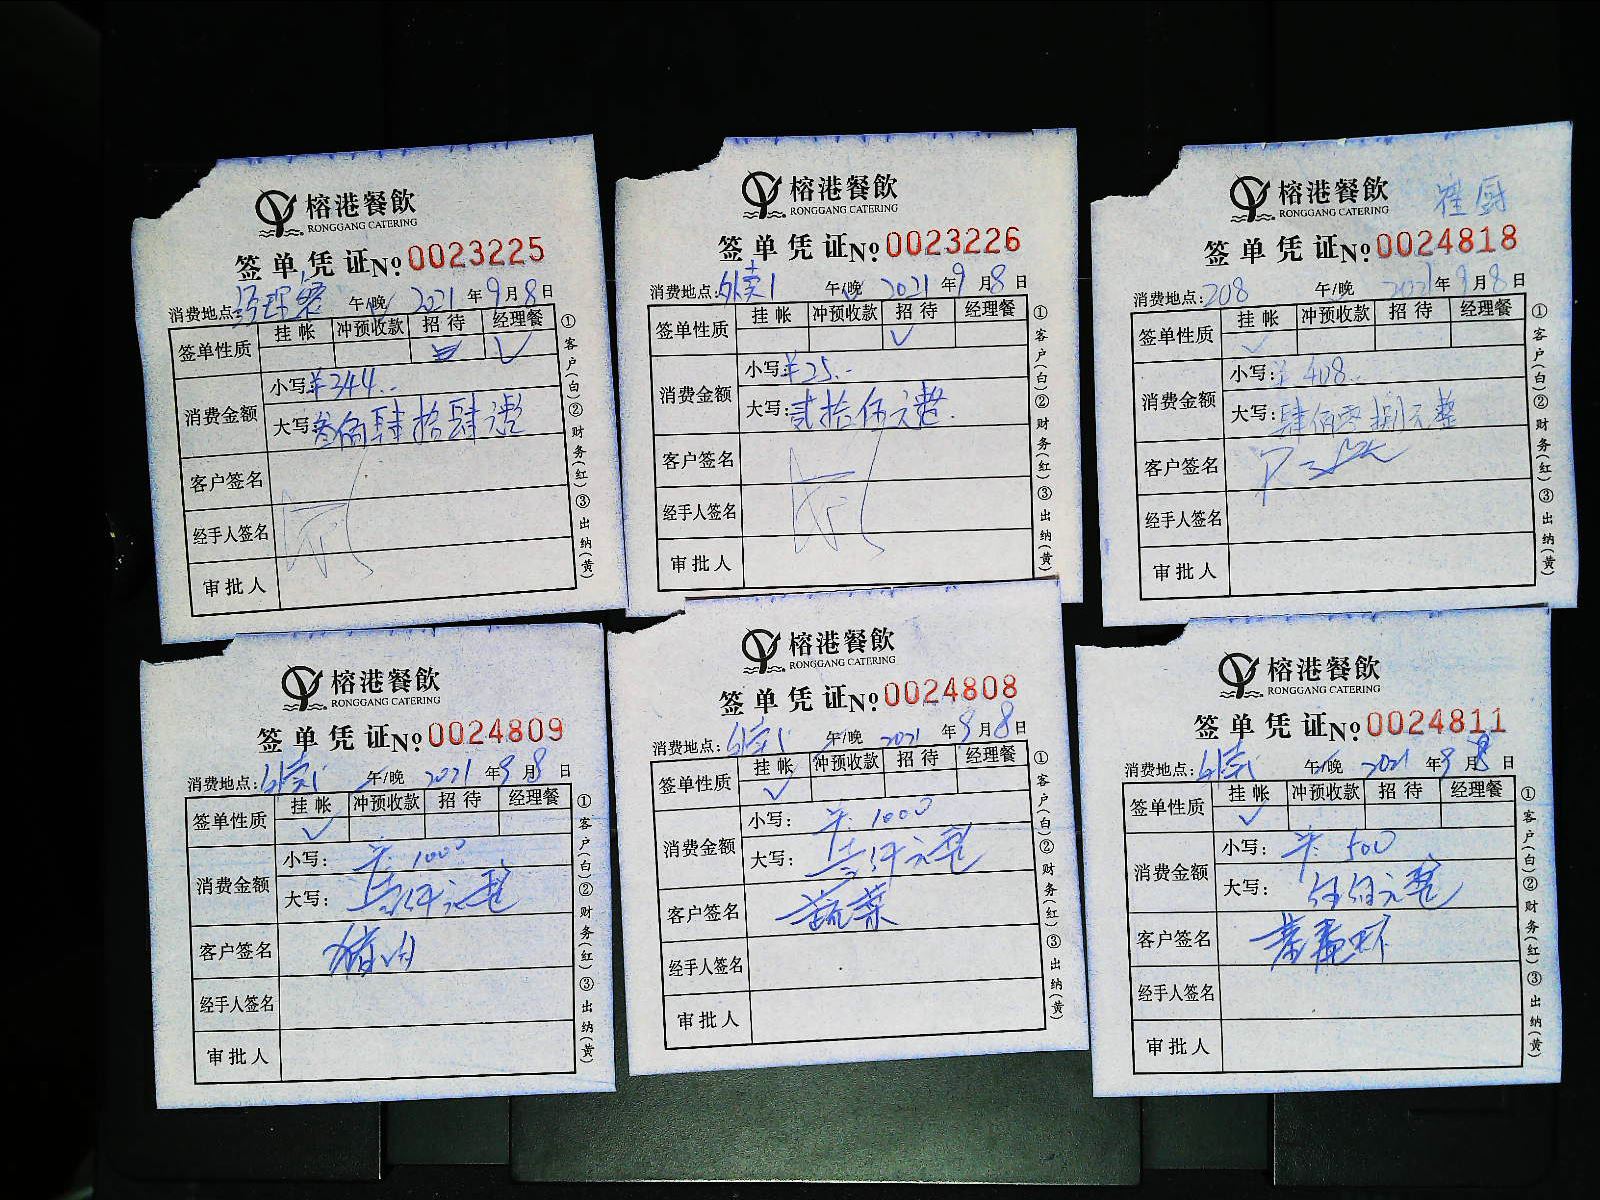 榕港餐飲
RONGGANG CATERING
签单凭证 №0023225
消费地点: 经理餐 午/晚 2021年9月8日
签单性质 挂帐 冲预收款 招待 经理餐
✓
消费金额 小写: ¥344..
大写: 叁佰肆拾肆元整
客户签名
经手人签名
审批人
①客户(白)②财务(红)③出纳(黄)
榕港餐飲
RONGGANG CATERING
签单凭证 №0023226
消费地点: 外卖1 午/晚 2021年9月8日
签单性质 挂帐 冲预收款 招待 经理餐
✓
消费金额 小写: ¥25.-
大写: 贰拾伍元整.
客户签名
经手人签名
审批人
①客户(白)②财务(红)③出纳(黄)
榕港餐飲
RONGGANG CATERING
崔厨
签单凭证 №0024818
消费地点: 208 午/晚 2021年9月8日
签单性质 挂帐 冲预收款 招待 经理餐
✓
消费金额 小写: ¥408..
大写: 肆佰零捌元整
客户签名
经手人签名
审批人
①客户(白)②财务(红)③出纳(黄)
榕港餐飲
RONGGANG CATERING
签单凭证 №0024809
消费地点: 外卖1 午/晚 2021年9月8日
签单性质 挂帐 冲预收款 招待 经理餐
✓
消费金额 小写: ¥: 1000
大写: 壹仟元整
客户签名 猪肉
经手人签名
审批人
①客户(白)②财务(红)③出纳(黄)
榕港餐飲
RONGGANG CATERING
签单凭证 №0024808
消费地点: 外卖1 午/晚 2021年9月8日
签单性质 挂帐 冲预收款 招待 经理餐
✓
消费金额 小写: ¥: 1000
大写: 壹仟元整
客户签名 蔬菜
经手人签名
审批人
①客户(白)②财务(红)③出纳(黄)
榕港餐飲
RONGGANG CATERING
签单凭证 №0024811
消费地点: 外卖1 午/晚 2021年9月8日
签单性质 挂帐 冲预收款 招待 经理餐
✓
消费金额 小写: ¥: 500
大写: 伍佰元整
客户签名
经手人签名
审批人
①客户(白)②财务(红)③出纳(黄)